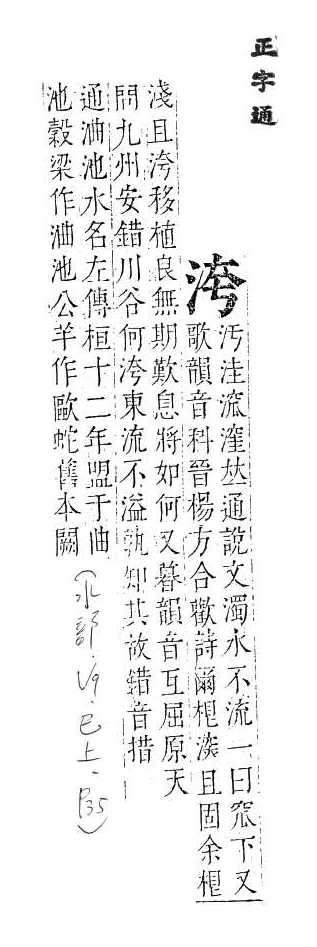 正字通
洿
汚洼溛漥𠀤通說文濁水不流一曰窊下又
歌韻音科晉楊方合歡詩爾根深且固余根
淺且洿移植良無期歎息將如何又暮韻音互屈原天
問九州安錯川谷何洿東流不溢孰知其故錯音措
通浀池水名左傳桓十二年盟于曲
池穀梁作浀池公羊作歐蛇舊本闕
(水部、V9、巳上、P35)